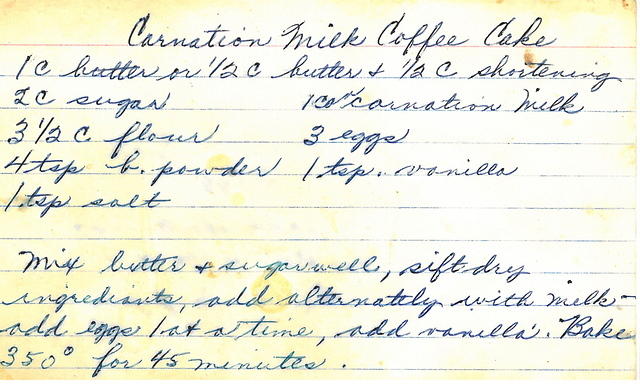 Carnation Milk Coffee Cake
1 C butter or 1/2 C butter & 1/2 C shortening
2 C sugar 1 can carnation Milk
3 1/2 C flour 3 eggs
4 tsp b. powder 1 tsp. vanilla
1 tsp salt
Mix butter & sugar well, sift dry
ingrediants, add alternately with milk -
add eggs 1 at a time, add vanilla. Bake
350° for 45 minutes.